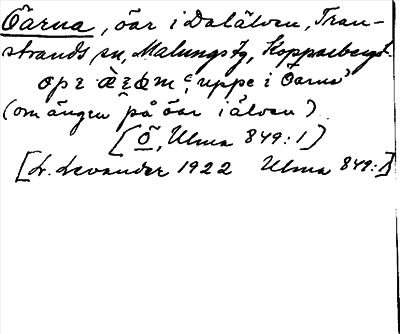 Öarna, öar i Dalälven, Tran-
strands sn, Malungs tg, Kopparbergs l.
"uppe i Öarna"
(om ängen på öar i älven)
[Ö, Ulma 849:1)
[L. Levander 1922 Ulma 849:1]